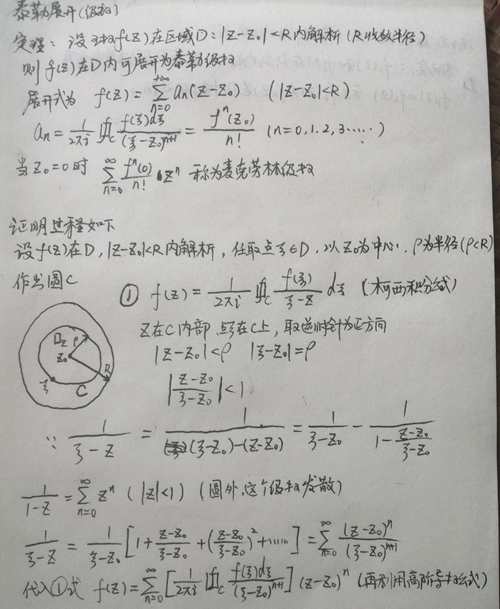 泰勒展开(级数)
定理: 设函数f(z)在区域D: |z-z₀|<R内解析 (R收敛半径)
则 f(z)在D内可展开为泰勒级数
展开式为 f(z) = ∑_{n=0}^{+∞} aₙ(z-z₀)ⁿ (|z-z₀|<R)
aₙ = 1/(2πi) ∮_C f(ξ)dξ/(ξ-z₀)^{n+1} = fⁿ(z₀)/n! (n=0,1,2,3……)
当 z₀=0时 ∑_{n=0}^{∞} fⁿ(0)/n! · zⁿ 称为麦克劳林级数
证明过程如下
设f(z)在D, |z-z₀|<R内解析, 任取点z∈D, 以z₀为中心, ρ为半径(ρ<R)
作出圆C
① f(z) = 1/(2πi) ∮_C f(ξ)/(ξ-z) dξ (柯西积分式)
z在C内部 点ξ在C上, 取逆时针为正方向
|z-z₀|<ρ |ξ-z₀|=ρ
|(z-z₀)/(ξ-z₀)|<1
D z ρ
z₀ R
ξ C
∵ 1/(ξ-z) = 1/((ξ-z₀)-(z-z₀)) = 1/(ξ-z₀) - 1/(1-(z-z₀)/(ξ-z₀))
1/(1-z) = ∑_{n=0}^{∞} zⁿ (|z|<1) (圆外,这个级数发散)
1/(ξ-z) = 1/(ξ-z₀) [1+(z-z₀)/(ξ-z₀)+((z-z₀)/(ξ-z₀))²+……] = ∑_{n=0}^{∞} (z-z₀)ⁿ/(ξ-z₀)^{n+1}
代入①式 f(z) = ∑_{n=0}^{∞} [1/(2πi) ∮_C f(ξ)dξ/(ξ-z₀)^{n+1}] (z-z₀)ⁿ (再利用高阶导数公式)